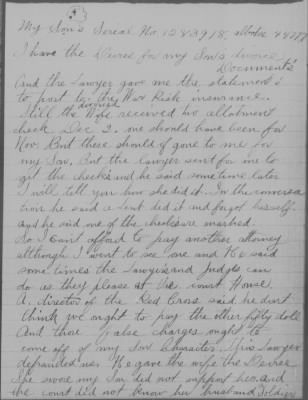 3
My Son's Serial No. 1283918, allotee 44
I have the Decree for my Son's Divorce
Documents
And the Lawyer gave me the statement's
to point to the War Risk insurance.
divorced
Still the Wife received two allotment
check Dec 2. one should have been for
Nov. But these should of gone to me for
my Son, But the Lawyer sent for me to
get the checks and he said some time later
I will tell you how she did it. In the conversa
tion he said a lent did it and forgot himself.
and he said one of the checks are marked.
So I can't afford to pay another attorney
although I went to see one and He said
some times the Lawyers and Judges can
do as they please at the court House
A. director of the Red Cross said he dont
think we ought to pay the other fifty doll
And those false charges ought to
come off of my Son Character. This Lawyer
defrauded us. He gave the wife the Decree
She swore my Son did not support her. and
the court did not know her husband Soldier